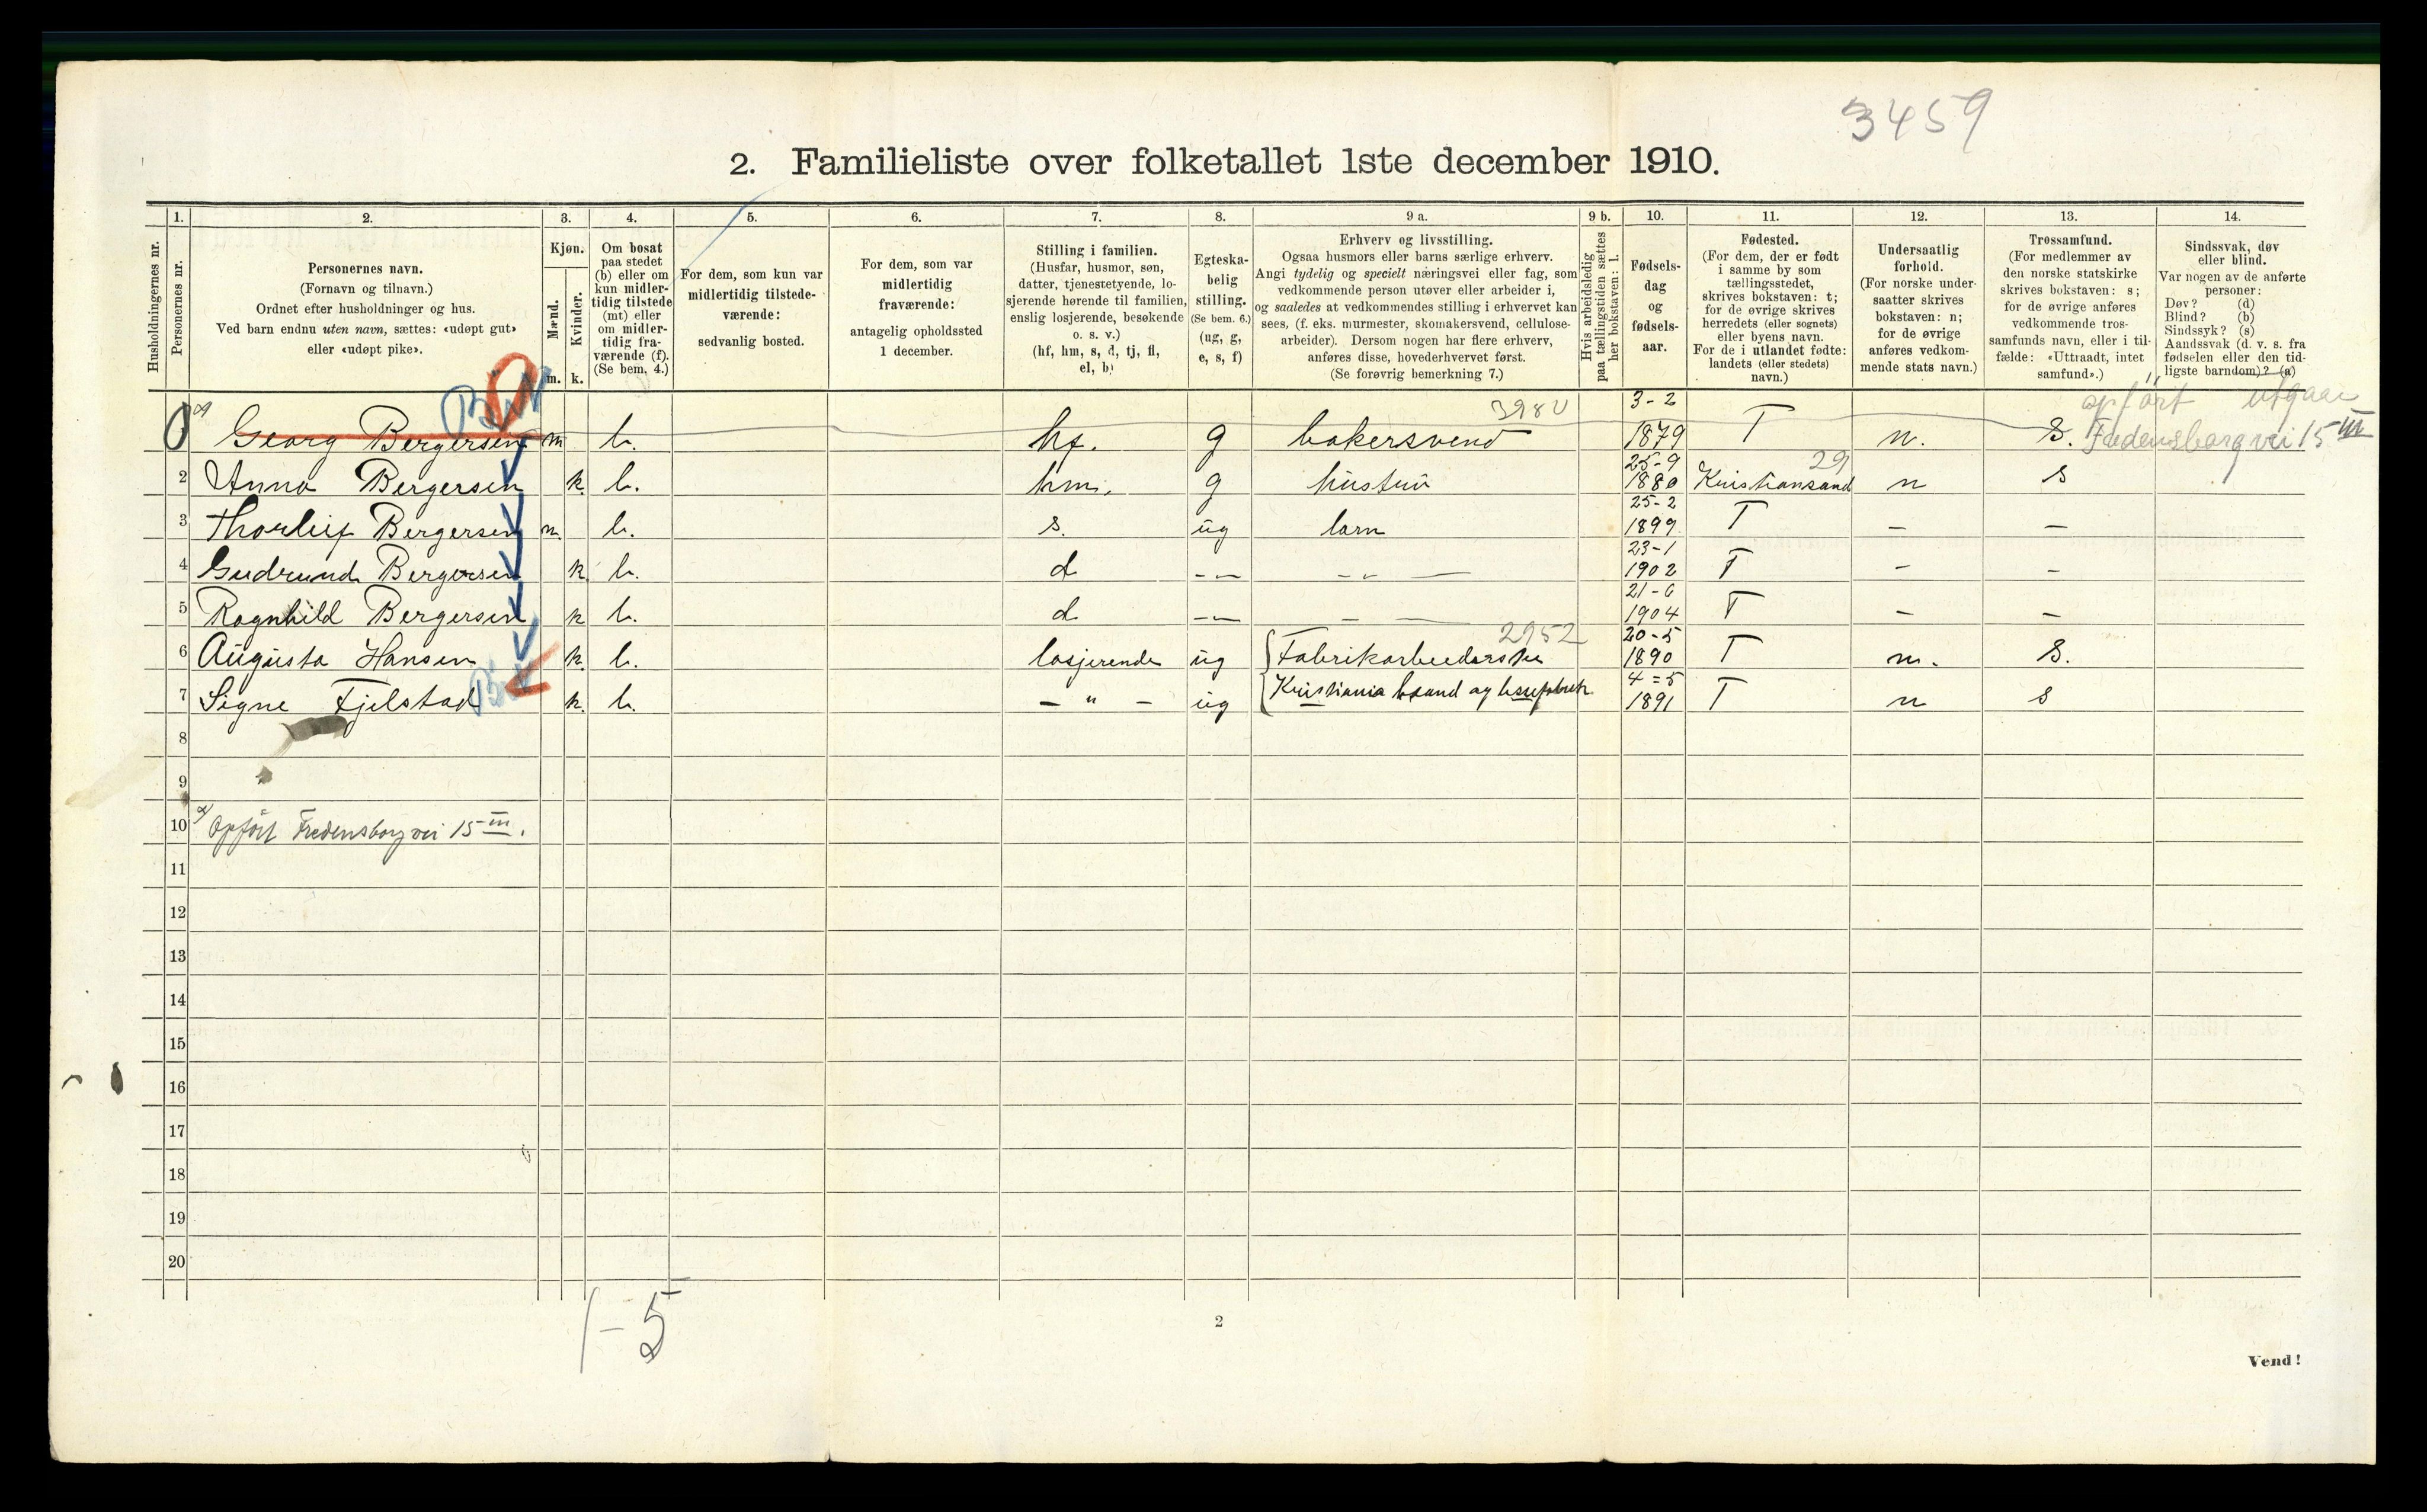 3459
2. Familieliste over folketallet 1ste december 1910.
1. 2. 3. 4. 5. 6. 7. 8. 9 a. 9 b. 10. 11. 12. 13. 14.
Husholdningernes nr.
Personernes nr.
Personernes navn.
(Fornavn og tilnavn.)
Ordnet efter husholdninger og hus.
Ved barn endnu uten navn, sættes: «udøpt gut»
eller «udøpt pike».
Kjøn.
Mænd.
Kvinder.
m. k.
Om bosat
paa stedet
(b) eller om
kun midler-
tidig tilstede
(mt) eller
om midler-
tidig fra-
værende (f).
(Se bem. 4.)
For dem, som kun var
midlertidig tilstede-
værende:
sedvanlig bosted.
For dem, som var
midlertidig
fraværende:
antagelig opholdssted
1 december.
Stilling i familien.
(Husfar, husmor, søn,
datter, tjenestetyende, lo-
sjerende hørende til familien,
enslig losjerende, besøkende
o. s. v.)
(hf, hm, s, d, tj, fl,
el, b)
Egteska-
belig
stilling.
(Se bem. 6.)
(ug, g,
e, s, f)
Erhverv og livsstilling.
Ogsaa husmors eller barns særlige erhverv.
Angi tydelig og specielt næringsvei eller fag, som
vedkommende person utøver eller arbeider i,
og saaledes at vedkommendes stilling i erhvervet kan
sees, (f. eks. murmester, skomakersvend, cellulose-
arbeider). Dersom nogen har flere erhverv,
anføres disse, hovederhvervet først.
(Se forøvrig bemerkning 7.)
Hvis arbeidsledig
paa tællingstiden sættes
her bokstaven: l.
Fødsels-
dag
og
fødsels-
aar.
Fødested.
(For dem, der er født
i samme by som
tællingsstedet,
skrives bokstaven: t;
for de øvrige skrives
herredets (eller sognets)
eller byens navn.
For de i utlandet fødte:
landets (eller stedets)
navn.)
Undersaatlig
forhold.
(For norske under-
saatter skrives
bokstaven: n;
for de øvrige
anføres vedkom-
mende stats navn.)
Trossamfund.
(For medlemmer av
den norske statskirke
skrives bokstaven: s;
for de øvrige anføres
vedkommende tros-
samfunds navn, eller i til-
fælde: «Uttraadt, intet
samfund».)
Sindssvak, døv
eller blind.
Var nogen av de anførte
personer:
Døv? (d)
Blind? (b)
Sindssyk? (s)
Aandssvak (d. v. s. fra
fødselen eller den tid-
ligste barndom)? (a)
opført utgaar
Fredensborgvei 15 III
Georg Bergersen m b. hf. g bakersvend 3-2 1879 T n. S.
2 Anna Bergersen k. b. hm. g hustru 25-9 1880 Kristiansand 29 n s
3 Thorleif Bergersen m. b. s. ug barn 25-2 1899 T — —
4 Gudrund Bergersen k b. d -"- -"- 23-1 1902 T — —
5 Ragnhild Bergersen k b. d -"- — — 21-6 1904 T — —
2952
6 Augusta Hansen k. b. losjerende ug Fabrikarbeiderske 20-5 1890 T n. S.
7 Signe Fjelstad k. b. - " - ug Kristiania baand og lisefabrik 4=5 1891 T n s
8
9
10 Opført Fredensborgvei 15 III.
11
12
13
14
15
16
17
18
19
20
1-5
2
Vend!